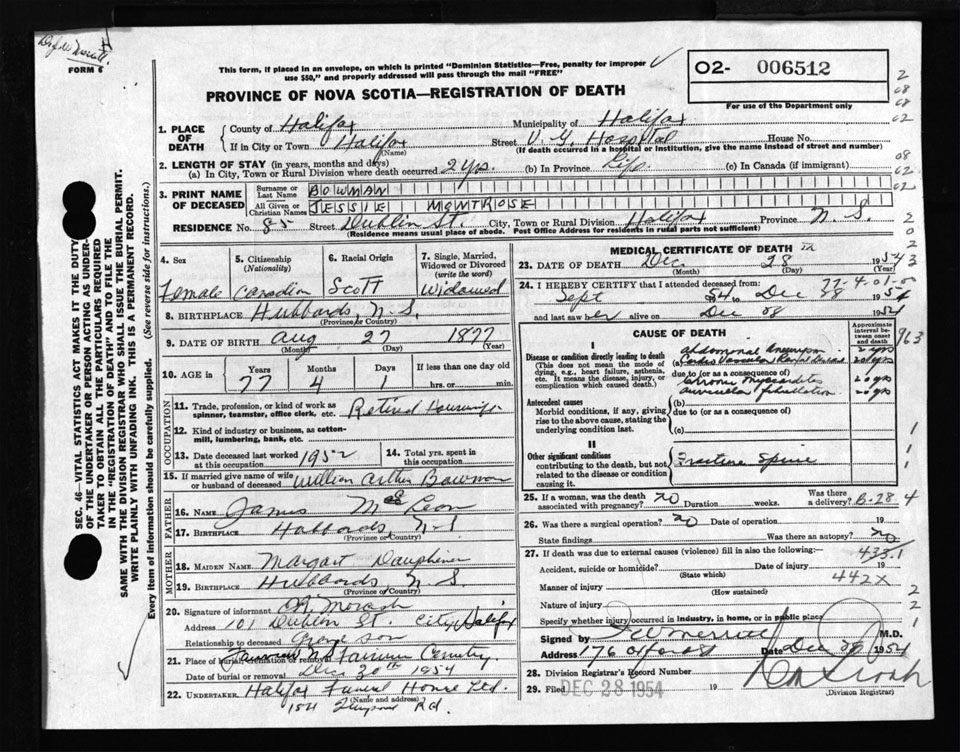 FORM 6
This form, if placed in an envelope, on which is printed "Dominion Statistics—Free, penalty for improper use $50," and properly addressed will pass through the mail "FREE"
02- 006512
For use of the Department only
PROVINCE OF NOVA SCOTIA—REGISTRATION OF DEATH
1. PLACE OF DEATH County of Halifax Municipality of Halifax
If in City or Town Halifax (Name) Street V. G. Hospital House No.
(If death occurred in a hospital or institution, give the name instead of street and number)
2. LENGTH OF STAY (in years, months and days)
(a) In City, Town or Rural Division where death occurred 2 yrs. (b) In Province Life (c) In Canada (if immigrant)
3. PRINT NAME OF DECEASED Surname or Last Name BOWMAN
All Given or Christian Names JESSIE MONTROSE
RESIDENCE No. 85 Street Dublin St. City, Town or Rural Division Halifax Province N.S.
(Residence means usual place of abode. Post Office Address for residents in rural parts not sufficient)
4. Sex Female
5. Citizenship (Nationality) Canadian
6. Racial Origin Scott
7. Single, Married, Widowed or Divorced (write the word) Widowed
8. BIRTHPLACE Hubbards, N.S. (Province or Country)
9. DATE OF BIRTH Aug (Month) 27 (Day) 1877 (Year)
10. AGE Years 77 Months 4 Days 1 If less than one day hrs. or min.
OCCUPATION
11. Trade, profession, or kind of work as spinner, teamster, office clerk, etc. Retired Housewife
12. Kind of industry or business, as cotton-mill, lumbering, bank, etc.
13. Date deceased last worked at this occupation 1952
14. Total yrs. spent in this occupation
15. If married give name of wife or husband of deceased William Arthur Bowman
FATHER
16. Name James
17. Birthplace Hubbards, N.S. (Province or Country)
MOTHER
18. Maiden Name Margart Dauphinee
19. Birthplace Hubbards, N.S. (Province or Country)
20. Signature of informant Morash
Address 101 Dublin St. City, Halifax
Relationship to deceased Grand son
21. Place of burial, cremation or removal Fairview Cemetry
Date of burial or removal Dec 30th 1954
22. Undertaker Halifax Funeral Home Ltd.
(Name and address)
Rd.
MEDICAL CERTIFICATE OF DEATH
23. DATE OF DEATH Dec (Month) 28 (Day) 1954 (Year)
24. I HEREBY CERTIFY that I attended deceased from:
Sept 54 to Dec 28 1954
and last saw her alive on Dec 28 1954
CAUSE OF DEATH
Approximate interval between onset and death
I
Disease or condition directly leading to death
(This does not mean the mode of dying, e.g., heart failure, asthenia, etc. It means the disease, injury, or complication which caused death.)
Abdominal Aneurysm 2 yrs
(a) Cardio Vascular Renal Disease 20 yrs
due to (or as a consequence of)
Chronic myocarditis 20 yrs
Auricular fibrillation 20 yrs
Antecedent causes
Morbid conditions, if any, giving rise to the above cause, stating the underlying condition last.
(b)
due to (or as a consequence of)
(c)
II
Other significant conditions
contributing to the death, but not related to the disease or condition causing it.
Fracture Spine
25. If a woman, was the death associated with pregnancy? no Duration weeks. Was there a delivery? B-28.4
26. Was there a surgical operation? no Date of operation 19
State findings Was there an autopsy? no
27. If death was due to external causes (violence) fill in also the following:— 433.1
Accident, suicide or homicide? (State which) Date of injury 19
442X
Manner of injury (How sustained)
Nature of injury
Specify whether injury occurred in industry, in home, or in public place
Signed by M.D.
Address 176 Oxford St Date Dec 28 1954
28. Division Registrar's Record Number
29. Filed DEC 28 1954 19
(Division Registrar)
SEC. 46—VITAL STATISTICS ACT MAKES IT THE DUTY
OF THE UNDERTAKER OR PERSON ACTING AS UNDERTAKER
TO OBTAIN ALL THE PARTICULARS REQUIRED
IN THE "REGISTRATION OF DEATH" AND TO FILE THE
SAME WITH THE DIVISION REGISTRAR WHO SHALL ISSUE THE BURIAL PERMIT.
WRITE PLAINLY WITH UNFADING INK. THIS IS A PERMANENT RECORD.
Every item of information should be carefully supplied. (See reverse side for instructions.)